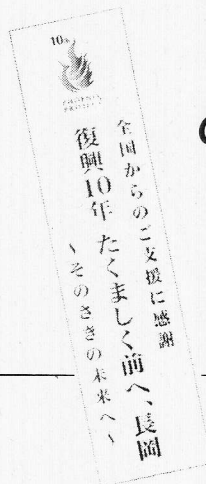 10年
全国からのご支援に感謝
復興10年 たくましく前へ、長岡
~そのさきの未来へ~